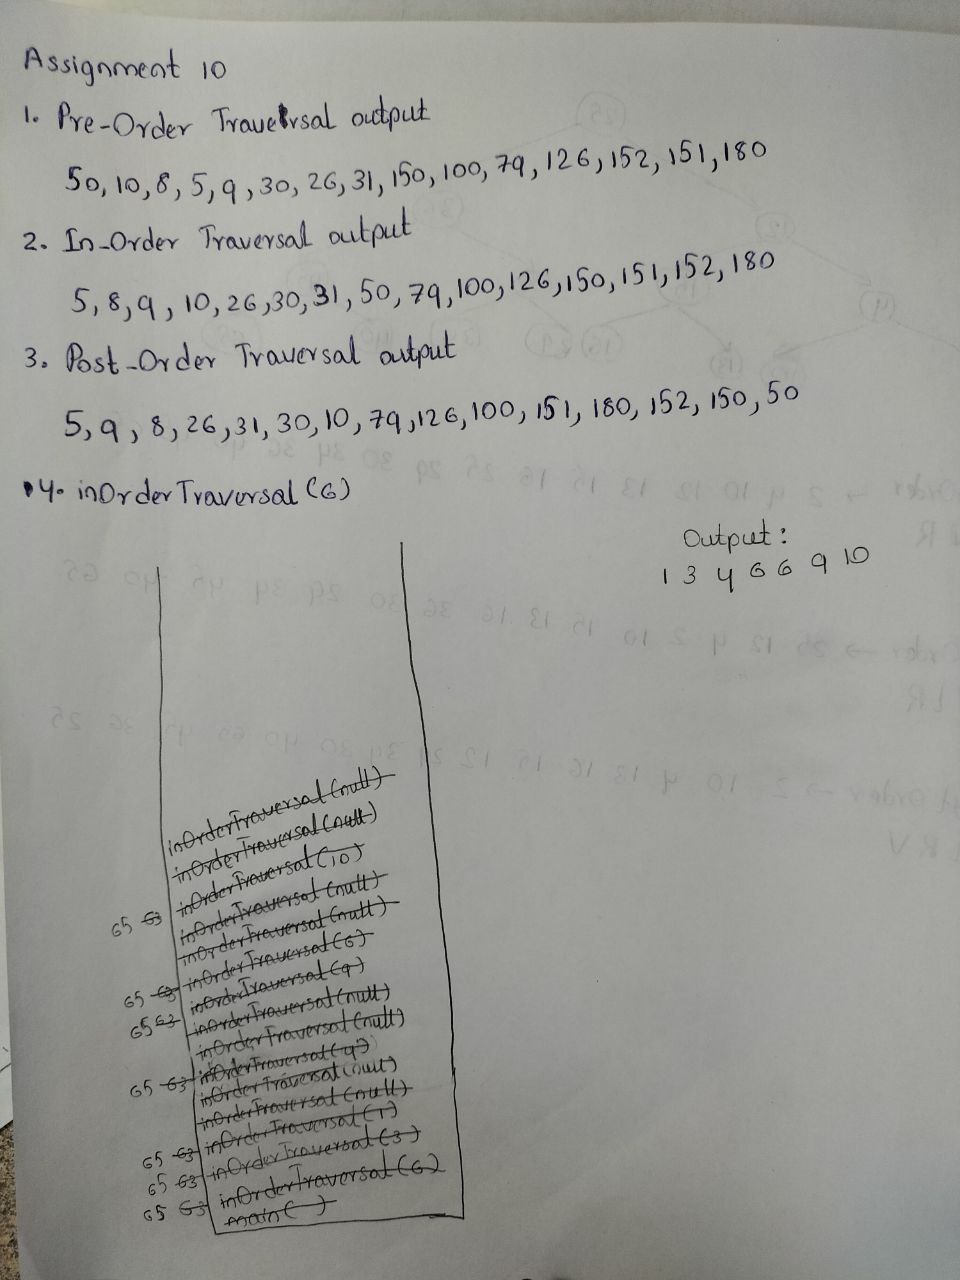 Assignment 10
1. Pre-Order Traversal output
50, 10, 8, 5, 9, 30, 26, 31, 150, 100, 79, 126, 152, 151, 180
2. In-Order Traversal output
5, 8, 9, 10, 26, 30, 31, 50, 79, 100, 126, 150, 151, 152, 180
3. Post-Order Traversal output
5, 9, 8, 26, 31, 30, 10, 79, 126, 100, 151, 180, 152, 150, 50
4. inOrderTraversal (6)
Output:
1 3 4 6 6 9 10
inOrderTraversal (null)
inOrderTraversal (null)
inOrderTraversal (10)
65 63 inOrderTraversal (null)
inOrderTraversal (null)
inOrderTraversal (6)
65 63 inOrderTraversal (9)
65 63 inOrderTraversal (null)
inOrderTraversal (null)
inOrderTraversal (4)
65 63 inOrderTraversal (null)
inOrderTraversal (null)
inOrderTraversal (1)
65 63 inOrderTraversal (3)
65 63 inOrderTraversal (6)
65 63 main ( )